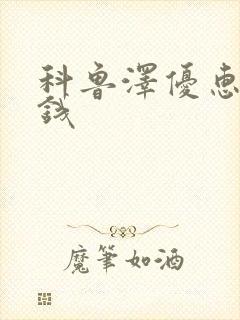 科鲁澤優惠
錢
魔筆如酒